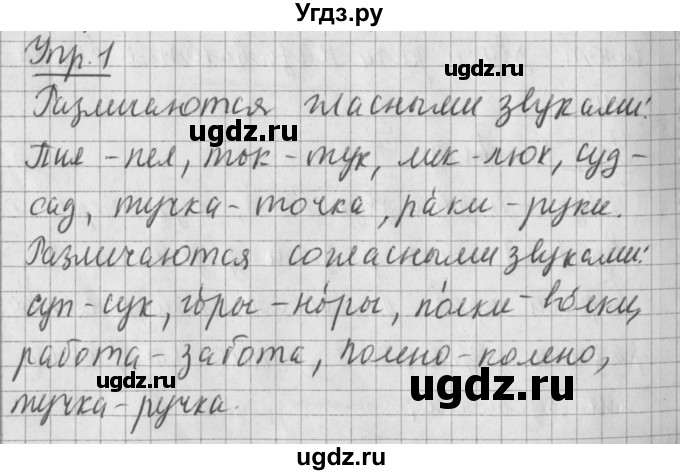 Угдз.ру
Упр. 1
Различаются гласными звуками:
Пил - пел, тык - тук, лик - люк, суд -
сад, тучка - точка, ра́ки - руки.
Различаются согласными звуками:
суп - сук, го́ры - но́ры, по́лки - во́лки,
работа - забота, полено - колено,
тучка - ручка.
ugdz.ru
ugdz.ru
ugdz.ru
ugdz.ru
ugdz.ru
ugdz.ru
Угдз.ру